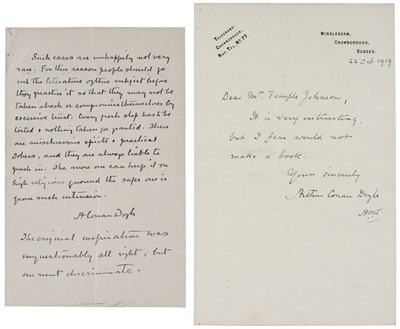 Such cases are unhappily not very
rare. For this reason people should go
into the literature of this subject before
they practice it so that they may not be
taken aback or compromise themselves by
excessive trust. Every fresh step has to be
tested & nothing taken for granted. There
are mischievous spirits & practical
Jokers, and they are always liable to
push in. The more one can keep it on
high religious ground the safer one is
from such intrusion.
A Conan Doyle
The original inspiration was
unquestionably all right, but
one must discriminate.
TELEGRAMS:
CROWBOROUGH.
NAT. TEL. No 77.
WINDLESHAM,
CROWBOROUGH,
SUSSEX.
22 Oct 1919
Dear Mrs Temple Johnson,
It is very interesting
but I fear would not
make a book.
Yours sincerely
Arthur Conan Doyle